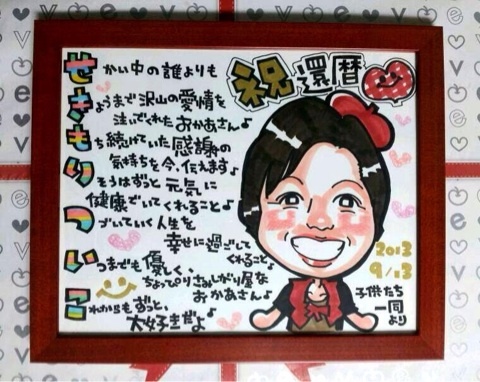 祝 還暦
せかい中の誰よりも
きょうまで沢山の愛情を
注いでくれたおかあさん♪
もち続けていた感謝の
気持ちを今、伝えます♪
りそうはずっと元気に
健康でいてくれること♪
つづいていく人生を
幸せに過ごして
くれること♪
いつまでも優しく、
ちょっぴりさみしがり屋な
おかあさん♪
これからもずっと、
大好きだよ♪
2013
9/13
子供たち
一同
より